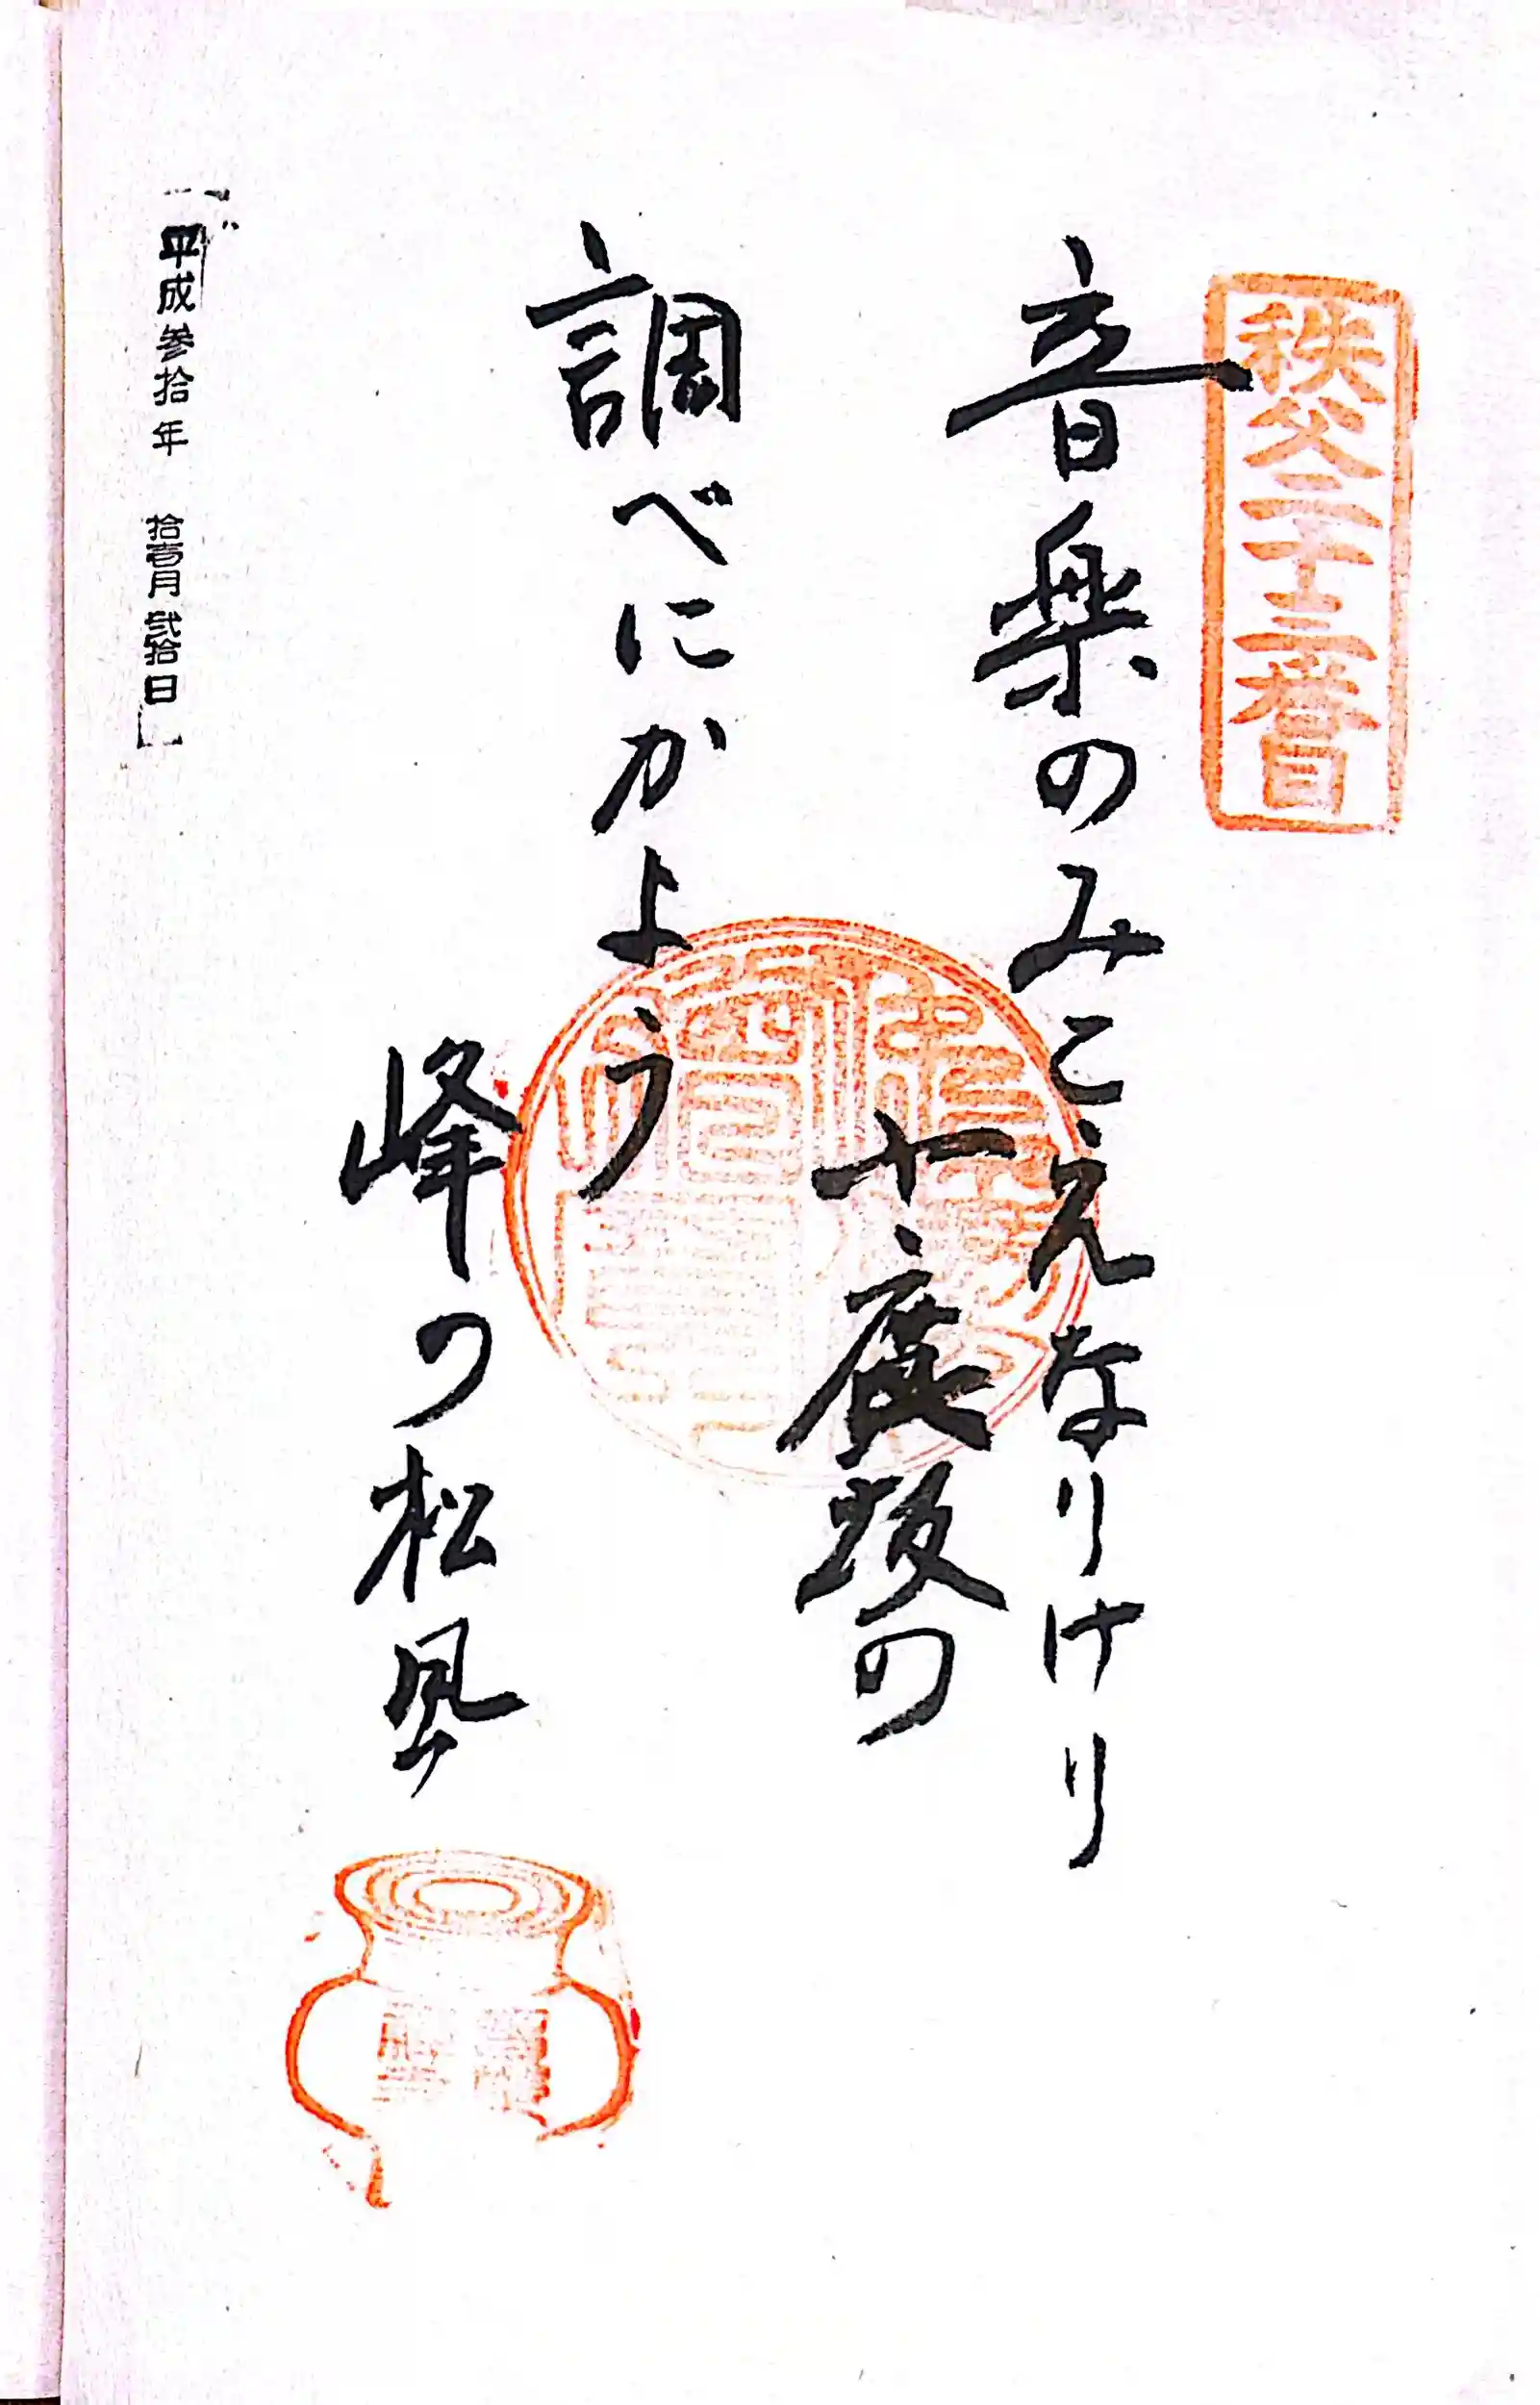 秩父二十三番
音楽のみこえなりけり
小鹿坂の
調べにかよう
峰の松風
平成参拾年 拾壹月 弐拾日